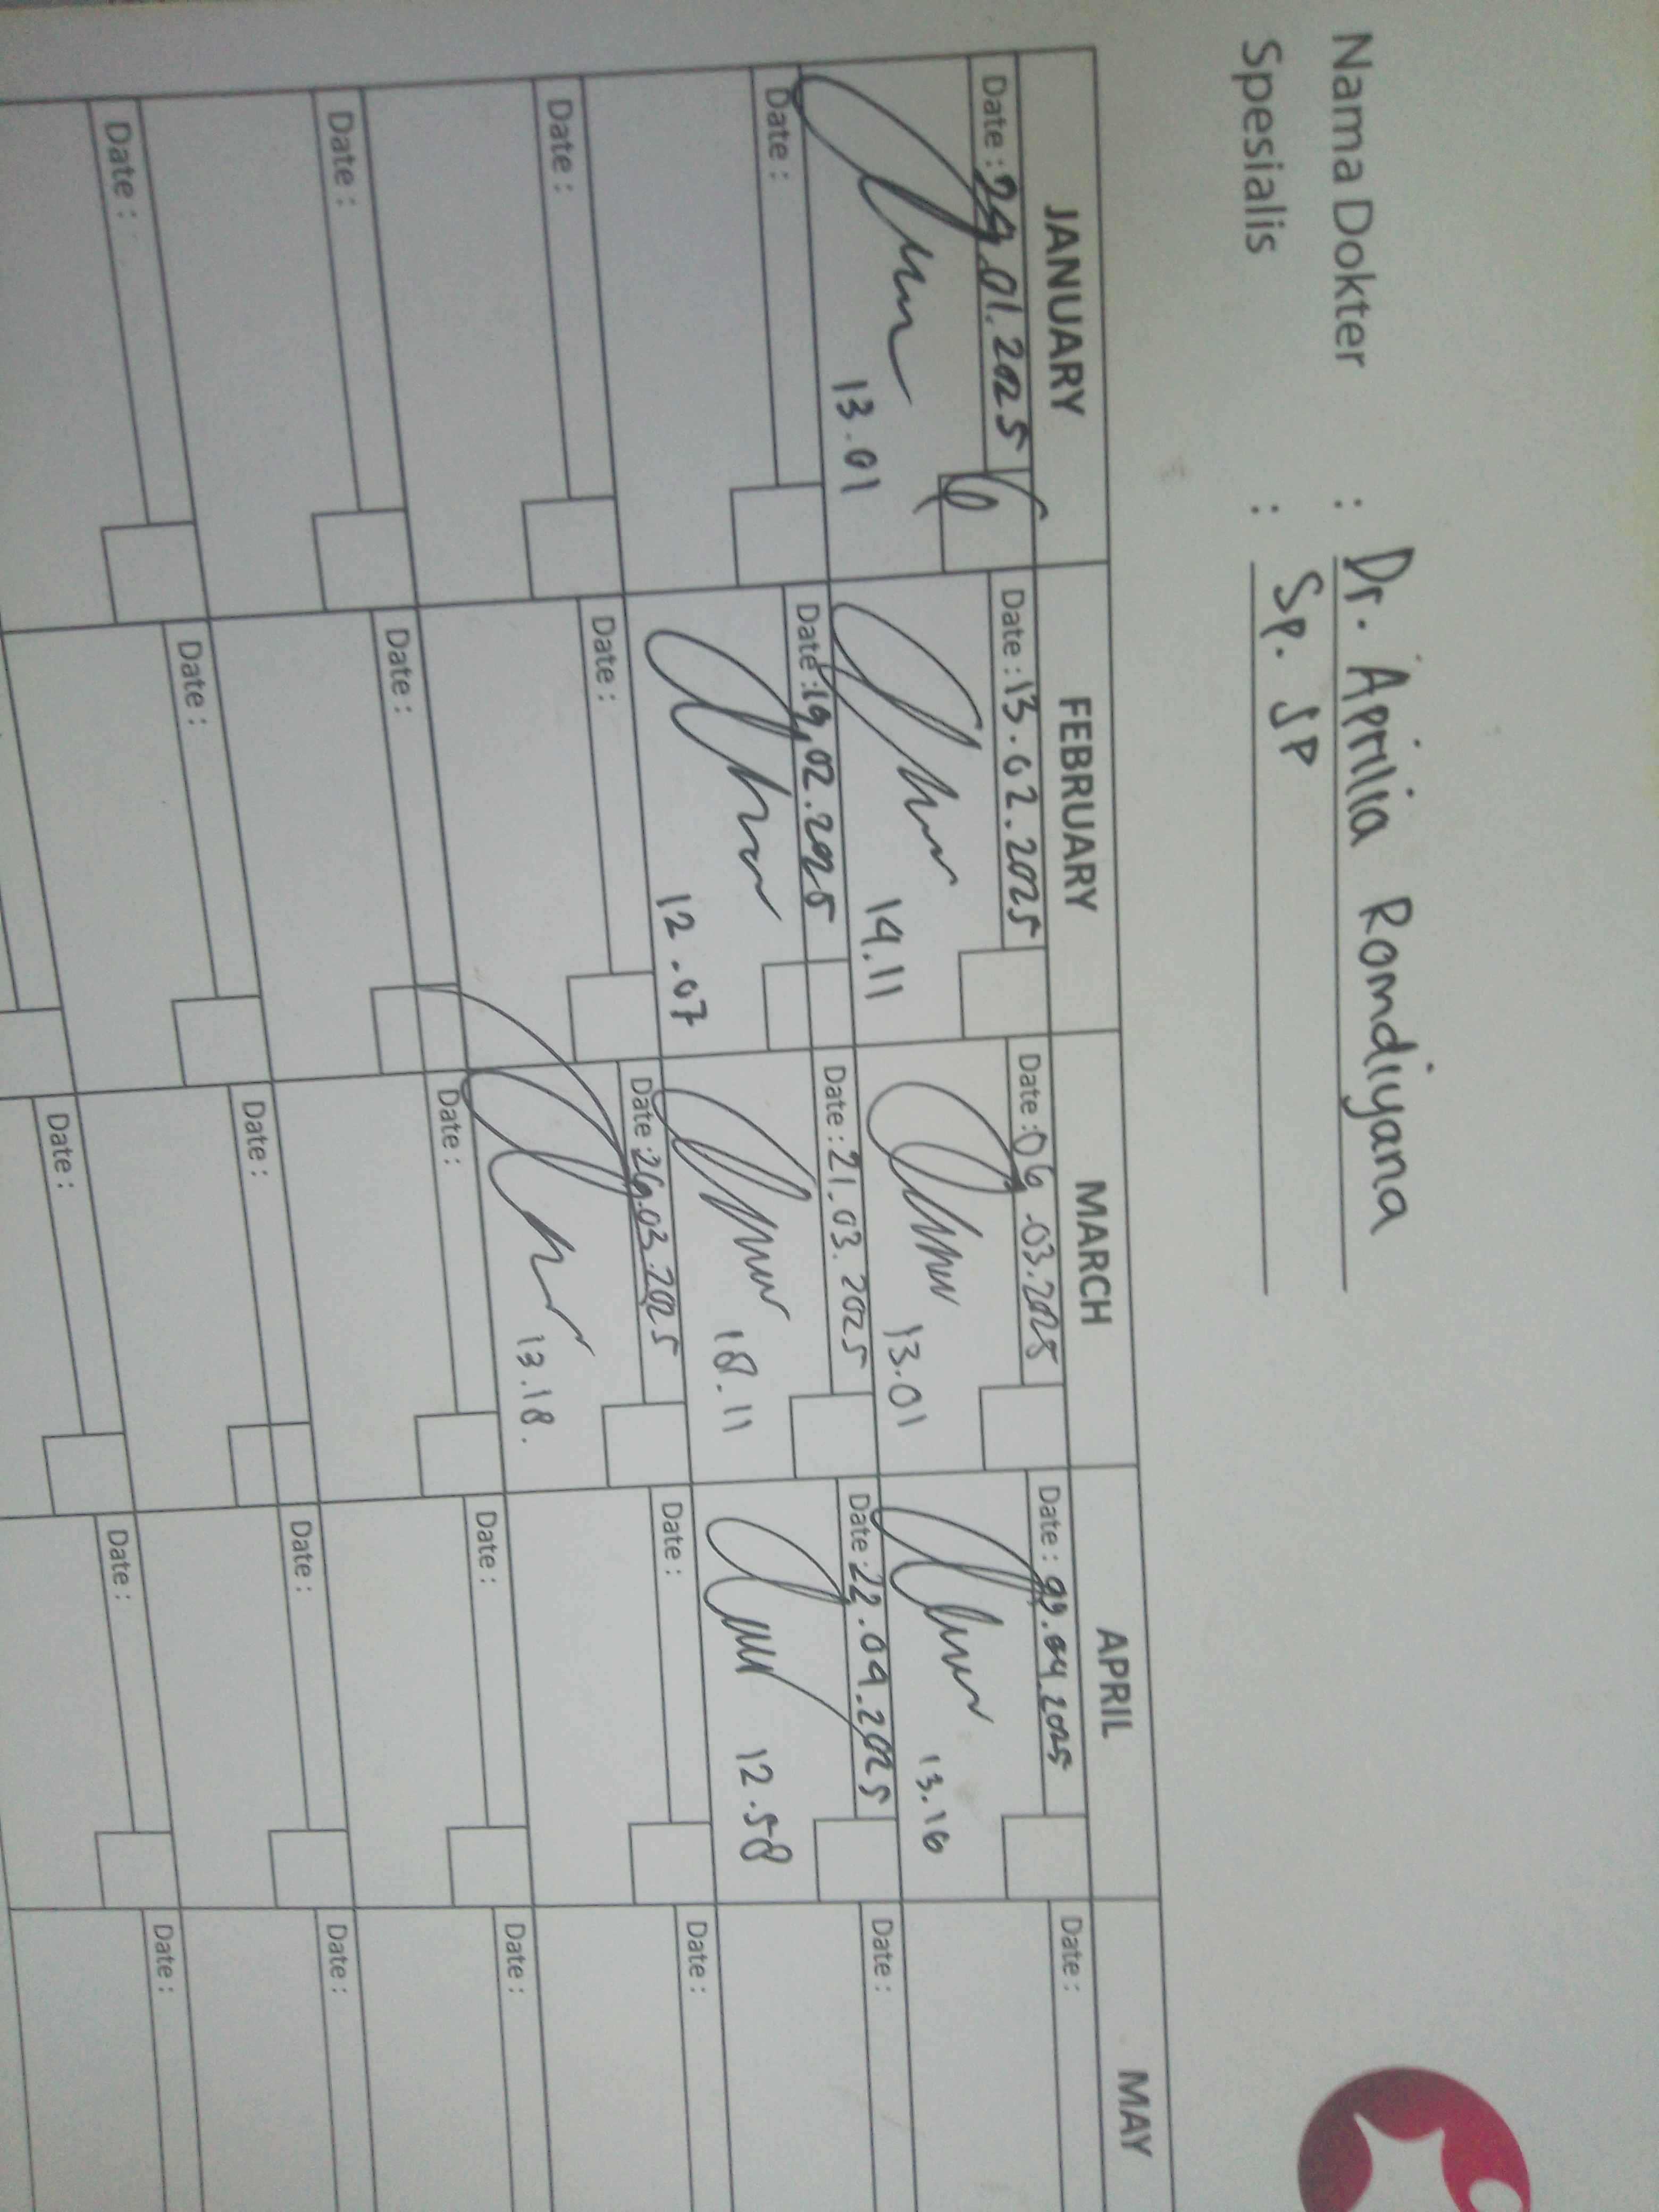 Nama Dokter : Dr. Aprilia Romdiyana
Spesialis : Sp. JP
JANUARY FEBRUARY MARCH APRIL MAY
Date : 29.01.2025 Date : 13.02.2025 Date : 06.03.2025 Date : 09.04.2025 Date :
13.01 14.11 13.01 13.16
Date : Date : 19.02.2025 Date : 21.03.2025 Date : 22.04.2025 Date :
12.07 18.11 12.58
Date : Date : Date : 26.03.2025 Date : Date :
13.18.
Date : Date : Date : Date : Date :
Date : Date : Date : Date : Date :
Date : Date : Date :